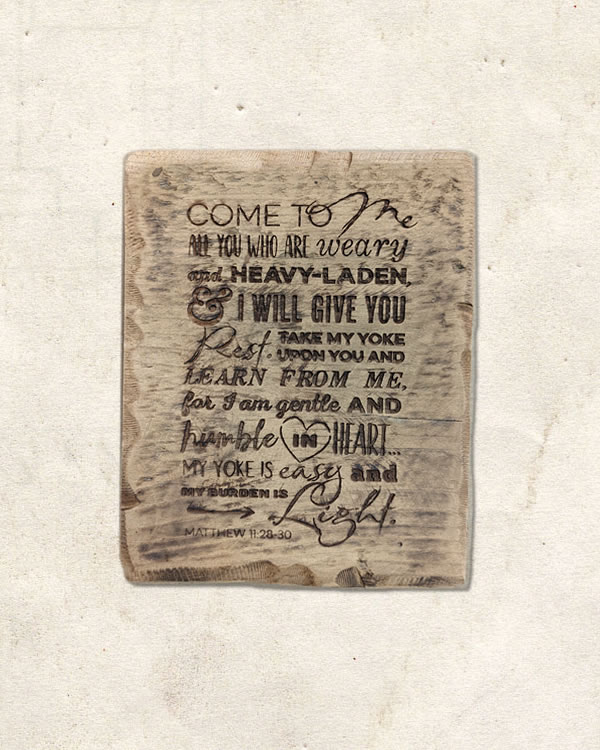 COME TO Me
ALL YOU WHO ARE weary
and HEAVY-LADEN,
& I WILL GIVE YOU
Rest. TAKE MY YOKE
UPON YOU AND
LEARN FROM ME,
for I am gentle AND
humble IN HEART...
MY YOKE IS easy and
MY BURDEN IS
Light.
MATTHEW 11:28-30